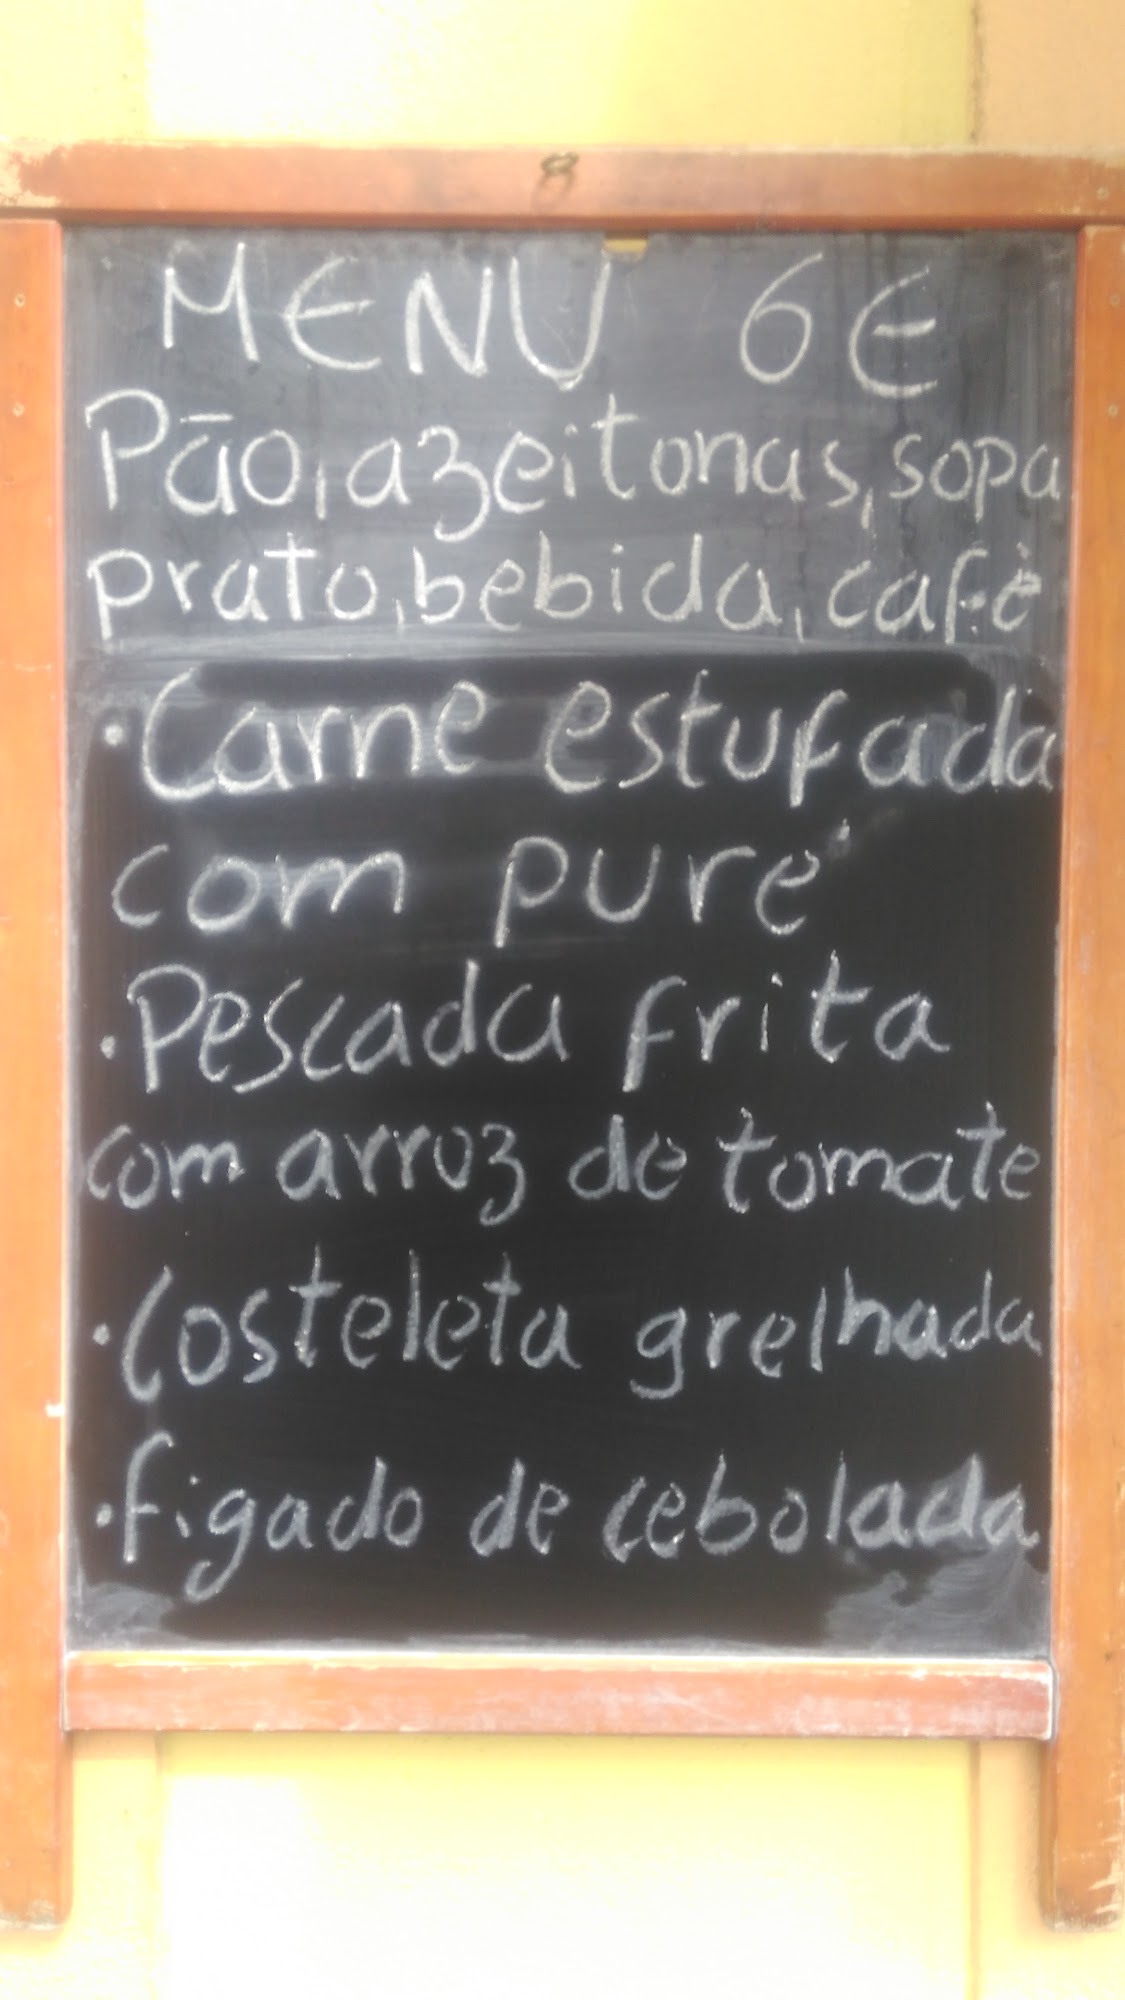 MENU 6€
Pão, azeitonas, sopa
prato, bebida, café
• Carne estufada
com puré
• Pescada frita
com arroz de tomate
• Costeleta grelhada
• figado de cebolada